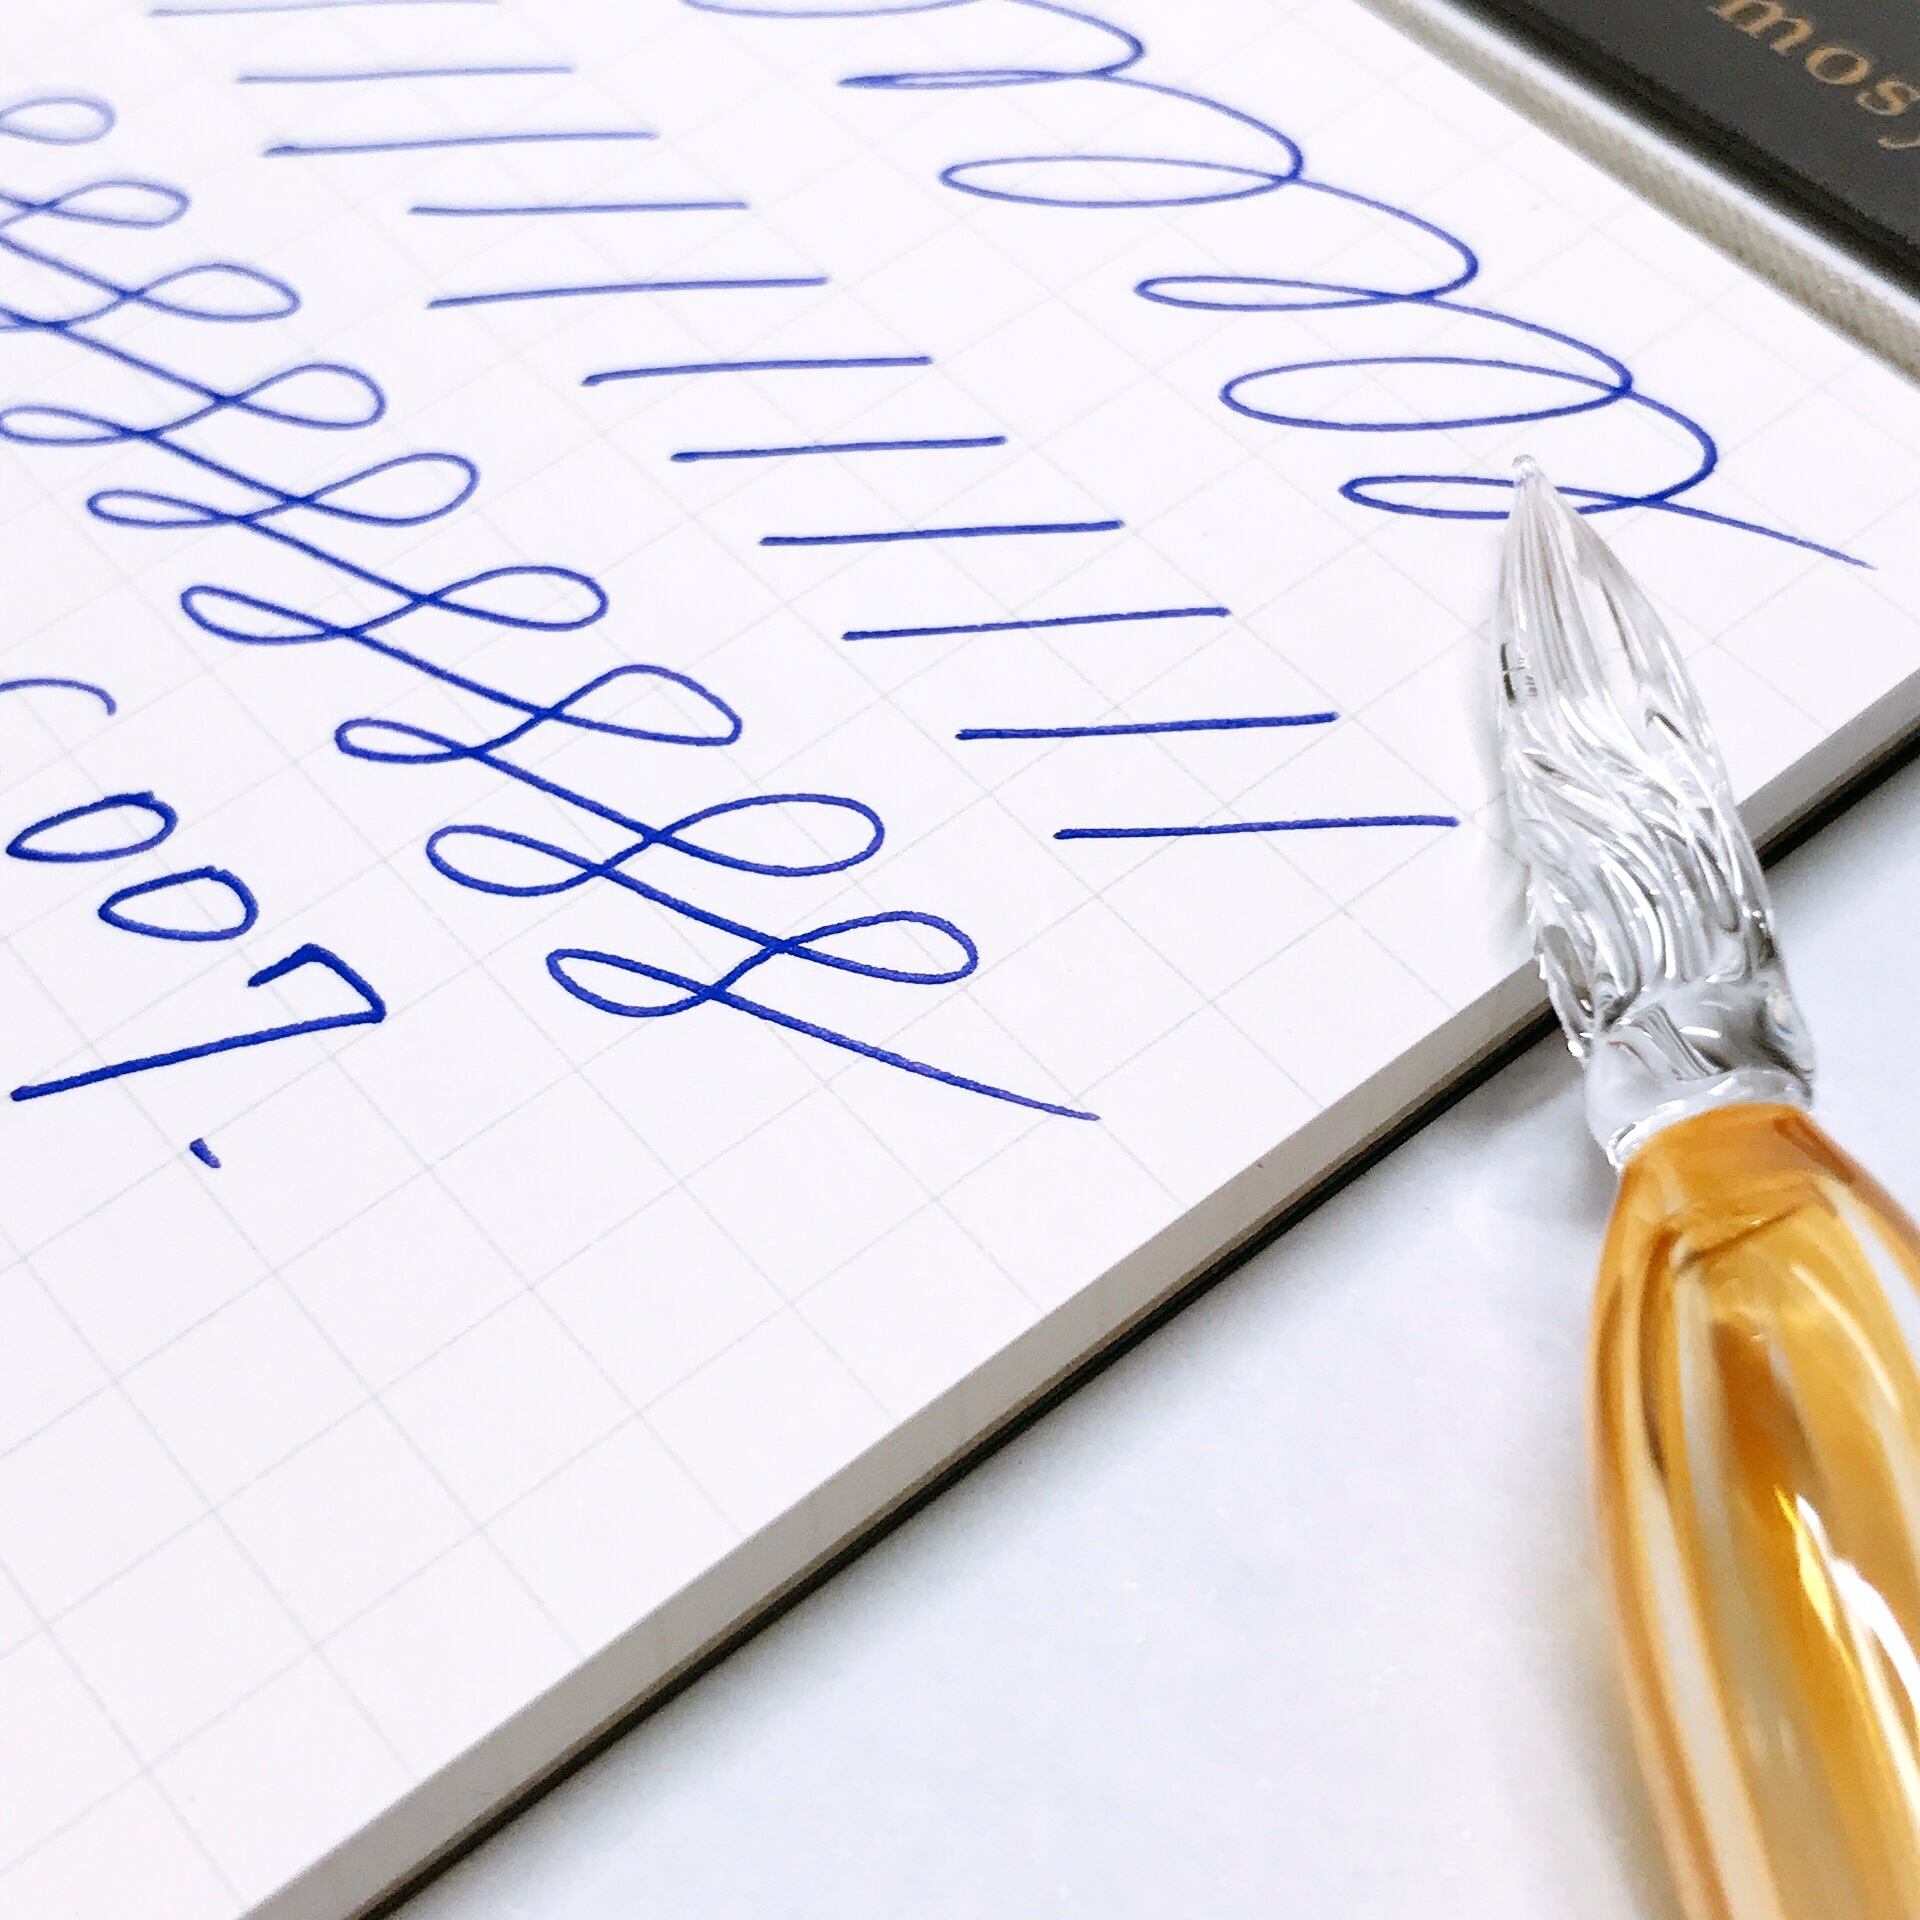 mosy
007